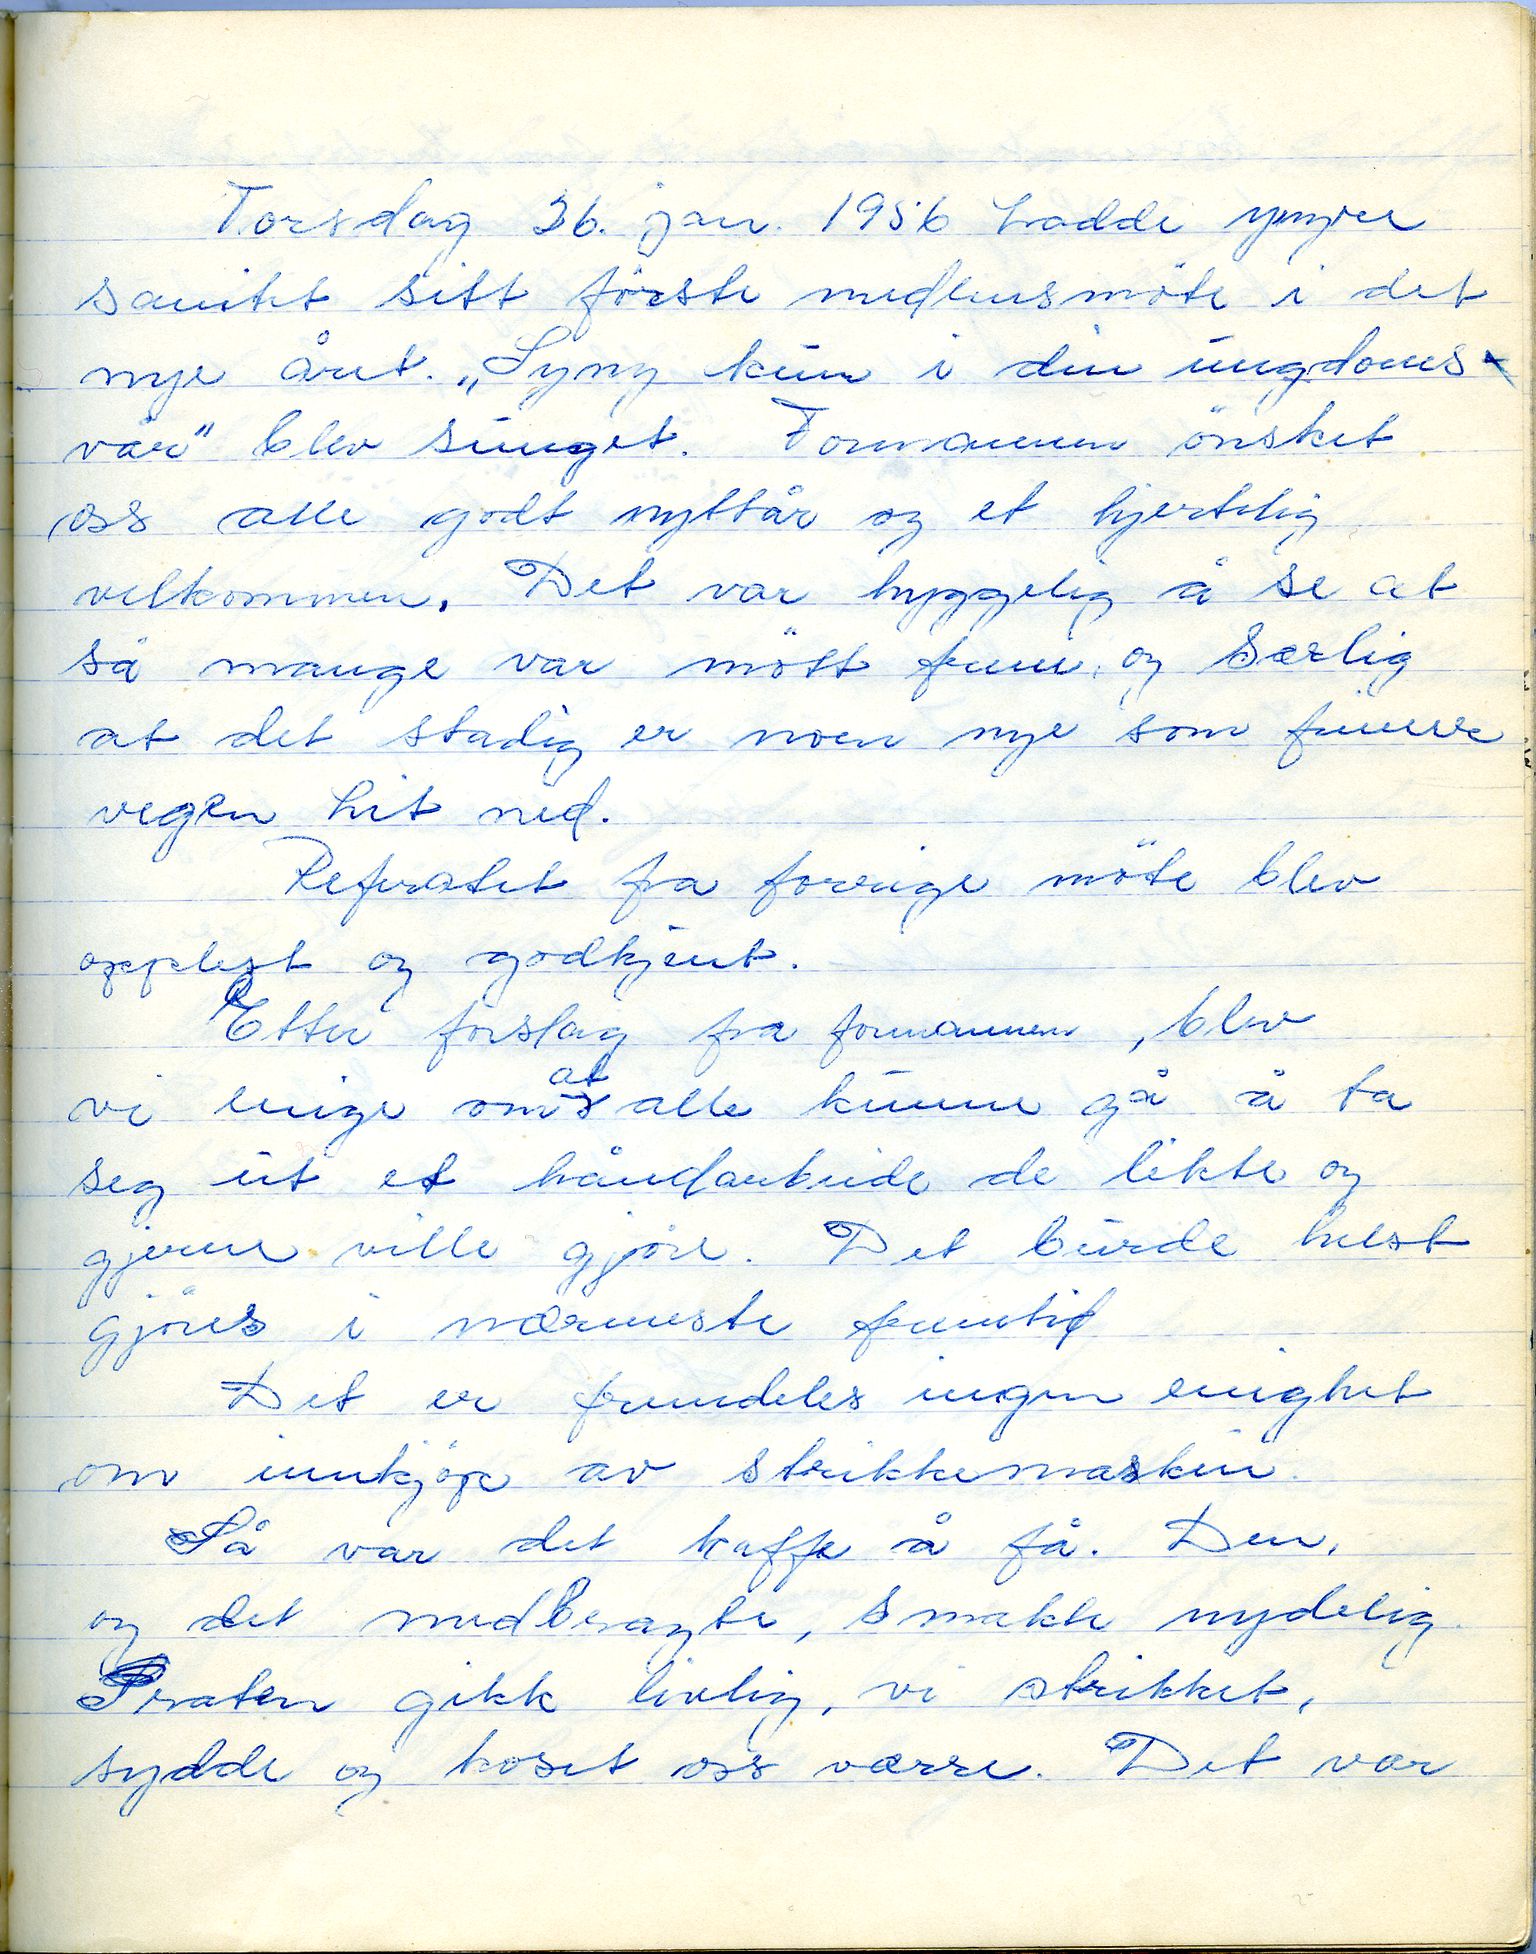 Torsdag 26. jan. 1956 hadde yngres
sanitet sitt förste medlemsmöte i det
nye året. „Syng kun i din ungdoms
vår" blev sunget. Formannen önsket
oss alle godt nyttår og et hjertelig
velkommen. Det var hyggelig å se at
så mange var mött frem, og særlig
at det stadig er noen nye som finner
vegen hit ned.
Referatet fra forrige möte blev
opplest og godkjent.
Etter forslag fra formannen, blev
vi enige om at alle kunne gå å ta
seg ut et håndarbeide de likte og
gjerne ville gjöre. Det burde helst
gjöres i nærmeste fremtid
Det er fremdeles ingen enighet
om innkjöp av strikkemaskin.
Så var det kaffe å få. Den,
og det medbragte, smakte nydelig.
Praten gikk livlig, vi strikket,
sydde og koset oss værre. Det var